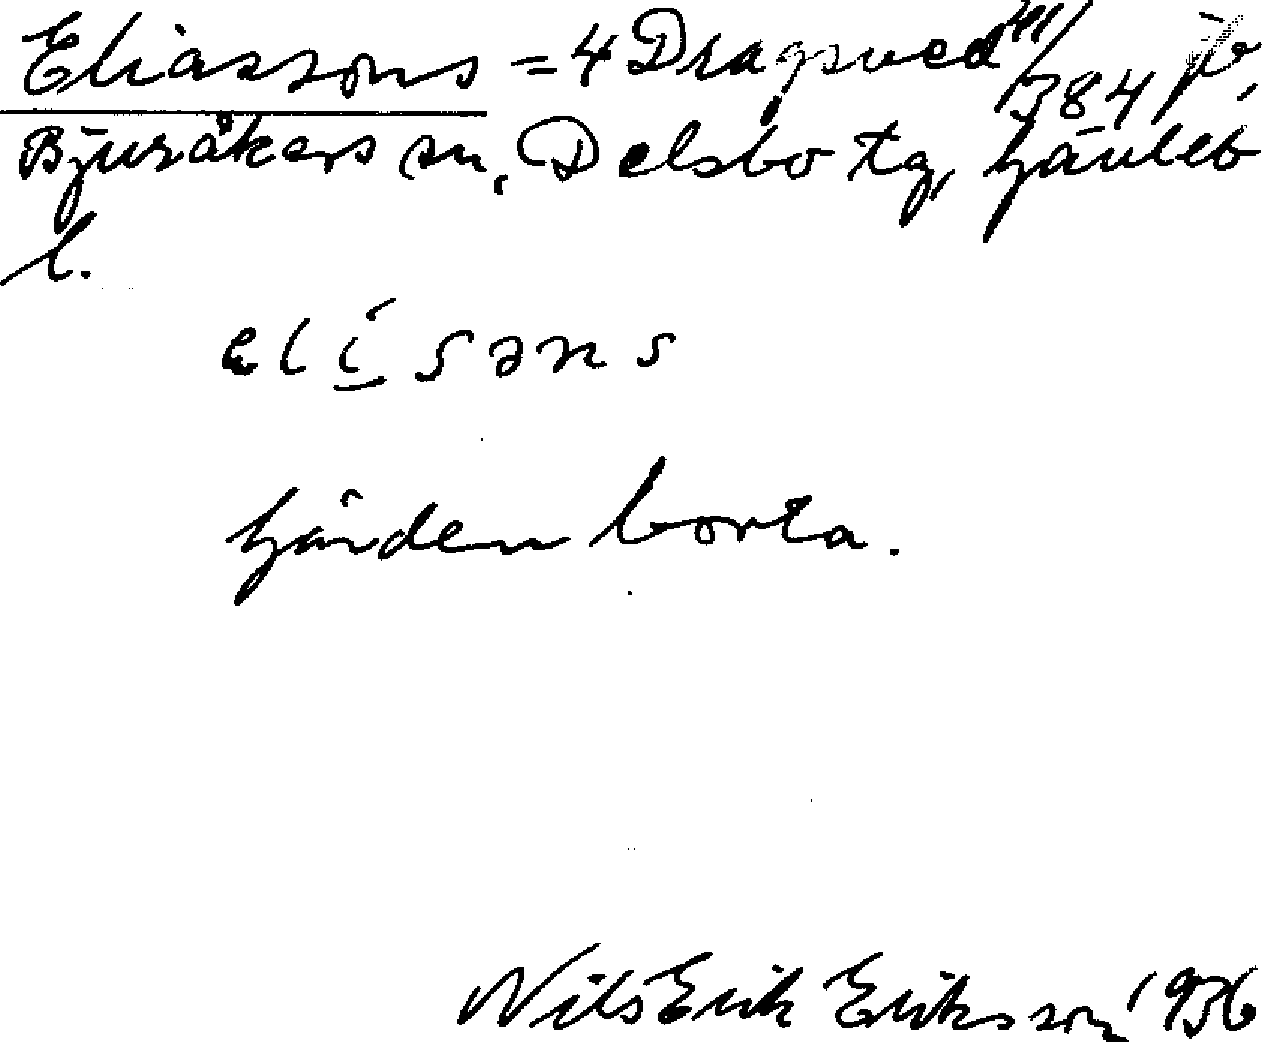 Eliassons = 4 Dragsved 111/384 jb,
Bjuråkers sn, Delsbo tg, Gävleb
l.
elísəns
Gården borta.
Nils Erik Eriksson 1936